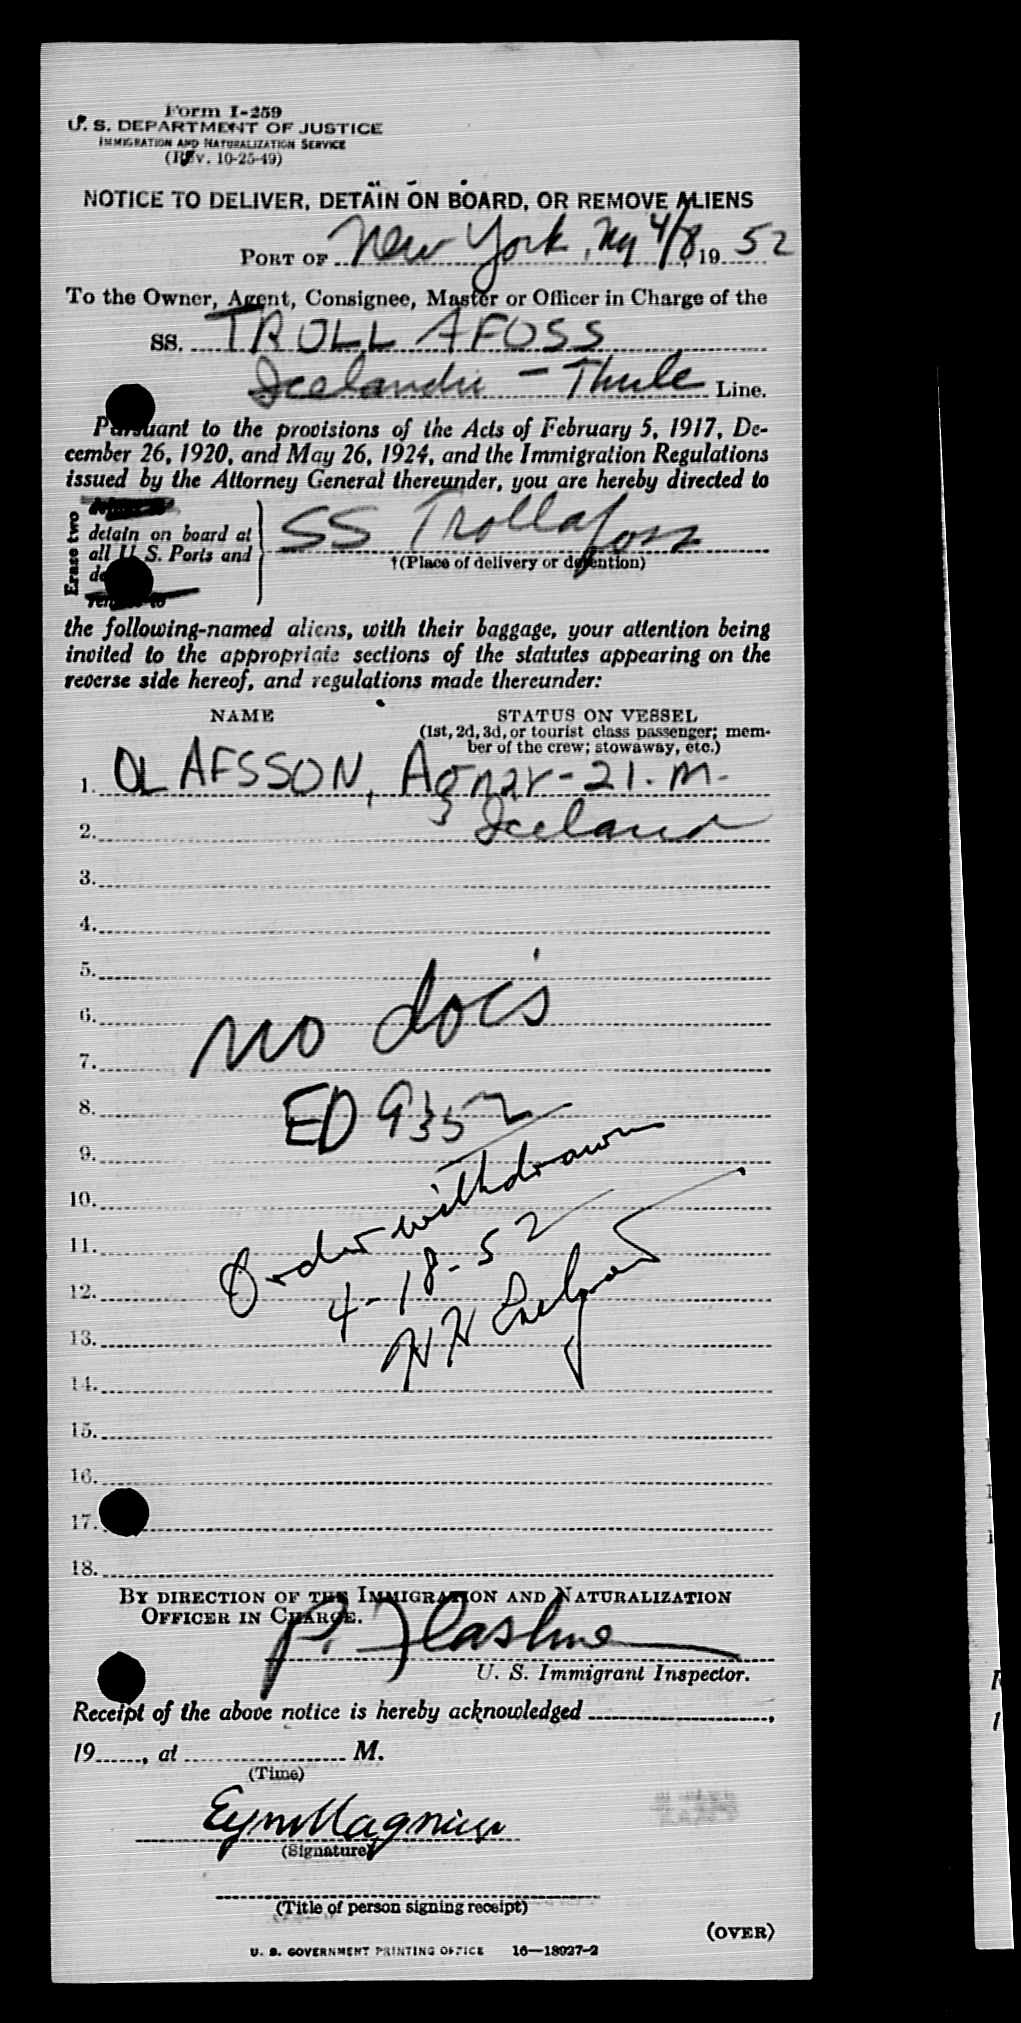 Form I-259
U. S. DEPARTMENT OF JUSTICE
IMMIGRATION AND NATURALIZATION SERVICE
(Rev. 10-25-49)
NOTICE TO DELIVER, DETAIN ON BOARD, OR REMOVE ALIENS
PORT OF New York, NY 4/8, 19 52
To the Owner, Agent, Consignee, Master or Officer in Charge of the
SS. TROLLAFOSS
Icelandic - Thule Line.
Pursuant to the provisions of the Acts of February 5, 1917, De-
cember 26, 1920, and May 26, 1924, and the Immigration Regulations
issued by the Attorney General thereunder, you are hereby directed to
Erase two
detain on board at
all U. S. Ports and
SS Trollafoss
†(Place of delivery or detention)
the following-named aliens, with their baggage, your attention being
invited to the appropriate sections of the statutes appearing on the
reverse side hereof, and regulations made thereunder:
NAME STATUS ON VESSEL
(1st, 2d, 3d, or tourist class passenger; mem-
ber of the crew; stowaway, etc.)
1. OLAFSSON, Agnar - 21. M.
2. Iceland
3.
4.
5.
6. no docs
7.
8. ED 9352
9.
10. Order withdrawn
11.
12. 4-18-52
13. HH
14.
15.
16.
17.
18.
BY DIRECTION OF THE IMMIGRATION AND NATURALIZATION
OFFICER IN CHARGE.
P.
U. S. Immigrant Inspector.
Receipt of the above notice is hereby acknowledged ,
19 , at M.
(Time)
(Signature)
(Title of person signing receipt)
(OVER)
U. S. GOVERNMENT PRINTING OFFICE 16—18027-2